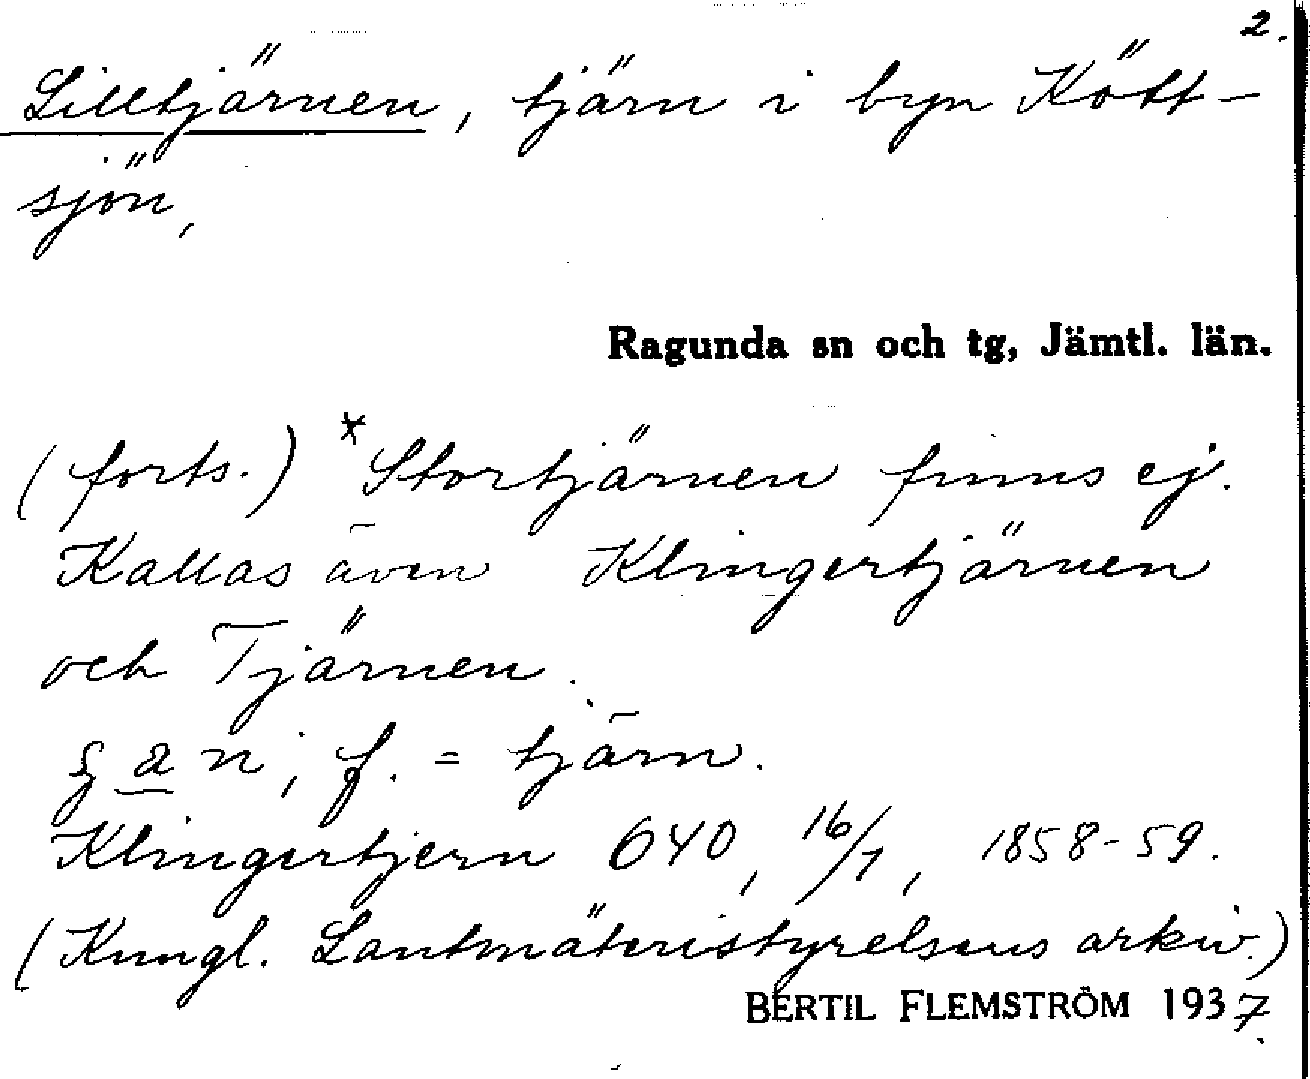 2.
Lilltjärnen, tjärn i byn Kött-
sjön,
Ragunda sn och tg, Jämtl. län.
(forts.) *Stortjärnen finns ej.
Kallas även Klingertjärnen
och Tjärnen.
f. = tjärn.
Klingertjern 640, 16/1, 1858-59.
(Kungl. Lantmäteristyrelsens arkiv.)
BERTIL FLEMSTRÖM 1937.